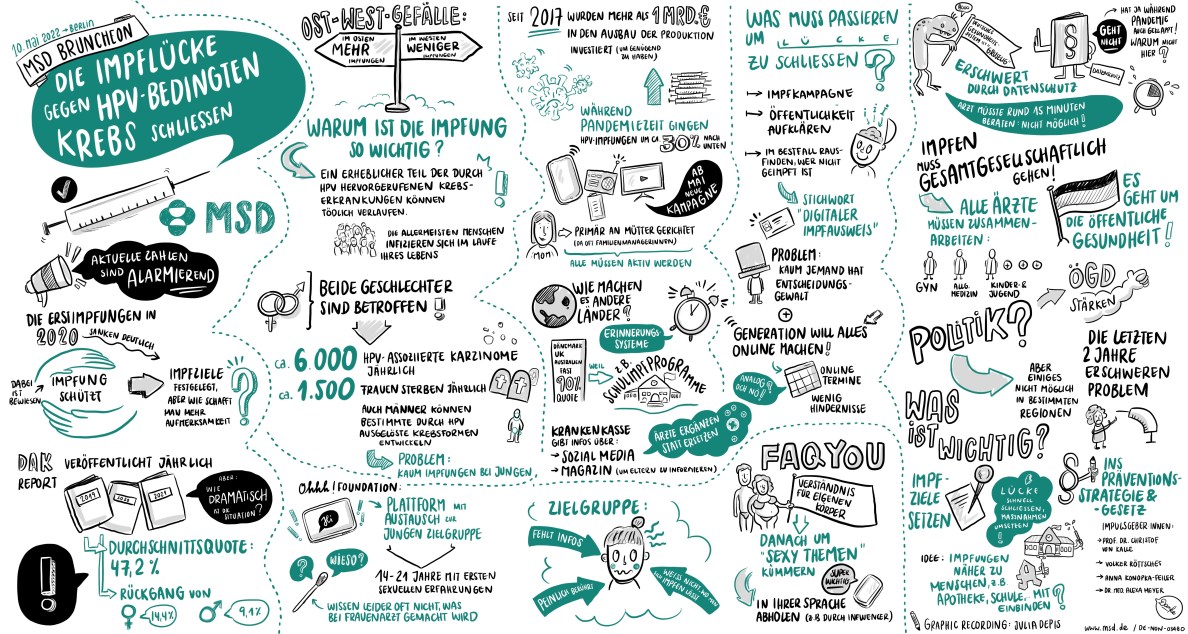 10. MAI 2022 → BERLIN
MSD BRUNCHEON
DIE IMPFLÜCKE
GEGEN HPV-BEDINGTEN
KREBS SCHLIESSEN
MSD
AKTUELLE ZAHLEN
SIND ALARMIEREND
DIE ERSTIMPFUNGEN IN
2020 SANKEN DEUTLICH
DABEI
IST
BEWIESEN
IMPFUNG
SCHÜTZT
IMPFZIELE
FESTGELEGT,
ABER WIE SCHAFFT
MAN MEHR
AUFMERKSAMKEIT
?
DAK
REPORT
VERÖFFENTLICHT JÄHRLICH
2019
2020
2021
ABER:
WIE
DRAMATISCH
IST DIE
SITUATION?
!
DURCHSCHNITTSQUOTE:
47,2 %
RÜCKGANG VON
14,4%
9,1%
OST-WEST-GEFÄLLE:
IM OSTEN
MEHR
IMPFUNGEN
IM WESTEN
WENIGER
IMPFUNGEN
WARUM IST DIE IMPFUNG
SO WICHTIG?
EIN ERHEBLICHER TEIL DER DURCH
HPV HERVORGERUFENEN KREBS-
ERKRANKUNGEN KÖNNEN
TÖDLICH VERLAUFEN.
!
DIE ALLERMEISTEN MENSCHEN
INFIZIEREN SICH IM LAUFE
IHRES LEBENS
BEIDE GESCHLECHTER
SIND BETROFFEN!
ca. 6.000 HPV-ASSOZIIERTE KARZINOME
JÄHRLICH
ca. 1.500 FRAUEN STERBEN JÄHRLICH
AUCH MÄNNER KÖNNEN
BESTIMMTE DURCH HPV
AUSGELÖSTE KREBSFORMEN
ENTWICKELN
PROBLEM:
KAUM IMPFUNGEN BEI JUNGEN
Ohhh! FOUNDATION:
Hi
?
WIESO?
PLATTFORM MIT
AUSTAUSCH ZUR
JUNGEN ZIELGRUPPE
14-21 JAHRE MIT ERSTEN
SEXUELLEN ERFAHRUNGEN
WISSEN LEIDER OFT NICHT, WAS
BEI FRAUENARZT GEMACHT WIRD
SEIT 2017 WURDEN MEHR ALS 1 MRD.€
IN DEN AUSBAU DER PRODUKTION
INVESTIERT (UM GENÜGEND
ZU HABEN)
WÄHREND
PANDEMIEZEIT GINGEN
HPV-IMPFUNGEN UM CA. 30% NACH
UNTEN
AB
MAI
NEUE
KAMPAGNE
MOM
PRIMÄR AN MÜTTER GERICHTET
(DA OFT FAMILIENMANAGERINNEN)
ALLE MÜSSEN AKTIV WERDEN
WIE MACHEN
ES ANDERE
LÄNDER?
ERINNERUNGS-
SYSTEME
DÄNEMARK
UK
AUSTRALIEN
FAST
90%
QUOTE
WEIL
Z.B.
SCHULIMPFPROGRAMME
KRANKENKASSE
GIBT INFOS ÜBER:
→ SOCIAL MEDIA
→ MAGAZIN (UM ELTERN ZU INFORMIEREN)
ÄRZTE ERGÄNZEN
STATT ERSETZEN
ZIELGRUPPE:
FEHLT INFOS
PEINLICH BERÜHRT
WEISS NICHT, WO MAN
SICH IMPFEN LASST
WAS MUSS PASSIEREN
UM LÜCKE
ZU SCHLIESSEN?
→ IMPFKAMPAGNE
→ ÖFFENTLICHKEIT
AUFKLÄREN
→ IM BESTFALL RAUS-
FINDEN, WER NICHT
GEIMPFT IST
STICHWORT
"DIGITALER
IMPFAUSWEIS"
PROBLEM:
KAUM JEMAND HAT
ENTSCHEIDUNGS-
GEWALT
+
GENERATION WILL ALLES
ONLINE MACHEN!
ANALOG?
OCH NÖ!
ONLINE
TERMINE
WENIG
HINDERNISSE
FAQ YOU
VERSTÄNDNIS
FÜR EIGENEN
KÖRPER
DANACH UM
"SEXY THEMEN"
KÜMMERN
SUPER
WICHTIG
IN IHRER SPRACHE
ABHOLEN (Z.B DURCH INFLUENCER)
DEUTSCHES
GESUNDHEITS-
SYSTEM IST
§
GEHT
NICHT
HAT JA WÄHREND
PANDEMIE
AUCH GEKLAPPT!
WARUM NICHT
HIER?
DATENSCHUTZ
ERSCHWERT
DURCH DATENSCHUTZ
ARZT MÜSSTE RUND 15 MINUTEN
BERATEN: NICHT MÖGLICH!
IMPFEN
MUSS
GESAMTGESELLSCHAFTLICH
GEHEN!
ALLE ÄRZTE
MÜSSEN ZUSAMMEN-
ARBEITEN:
GYN
ALLG.
MEDIZIN
KINDER-&
JUGEND
ES
GEHT UM
DIE ÖFFENTLICHE
GESUNDHEIT!
ÖGD
STÄRKEN
POLITIK?
ABER
EINIGES
NICHT MÖGLICH
IN BESTIMMTEN
REGIONEN
DIE LETZTEN
2 JAHRE
ERSCHWEREN
PROBLEM
WAS
IST WICHTIG?
IMPF-
ZIELE
SETZEN
LÜCKE
SCHNELL
SCHLIESSEN,
MASSNAHMEN
UMSETZEN
!
INS
PRÄVENTIONS-
STRATEGIE &
-GESETZ
IDEE: IMPFUNGEN
NÄHER ZU
MENSCHEN, Z.B.
APOTHEKE, SCHULE, MIT
EINBINDEN?
IMPULSGEBER INNEN:
→ PROF. DR. CHRISTOF
VON KALLE
→ VOLKER RÖTTSCHES
→ ANNA KONOPKA-FEILER
→ DR. MED. ALEXA MEYER
GRAPHIC RECORDING: JULIA DEPIS
www.msd.de / DE-NON-05480